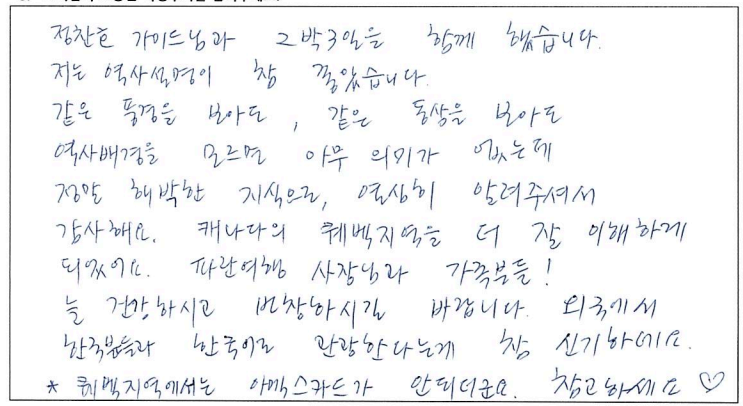 정찬호 가이드님과 2박3일을 함께 했습니다.
저는 역사설명이 참 좋았습니다.
같은 풍경을 보아도, 같은 동상을 보아도
역사배경을 모르면 아무 의미가 없는데
정말 해박한 지식으로, 열심히 알려주셔서
감사해요. 캐나다의 퀘벡지역을 더 잘 이해하게
되었어요. 파란여행 사장님과 가족분들!
늘 건강하시고 번창하시길 바랍니다. 외국에서
한국분들과 한국어로 관광한다는게 참 신기하네요.
* 퀘벡지역에서는 아멕스카드가 안되더군요. 참고하세요 ♡